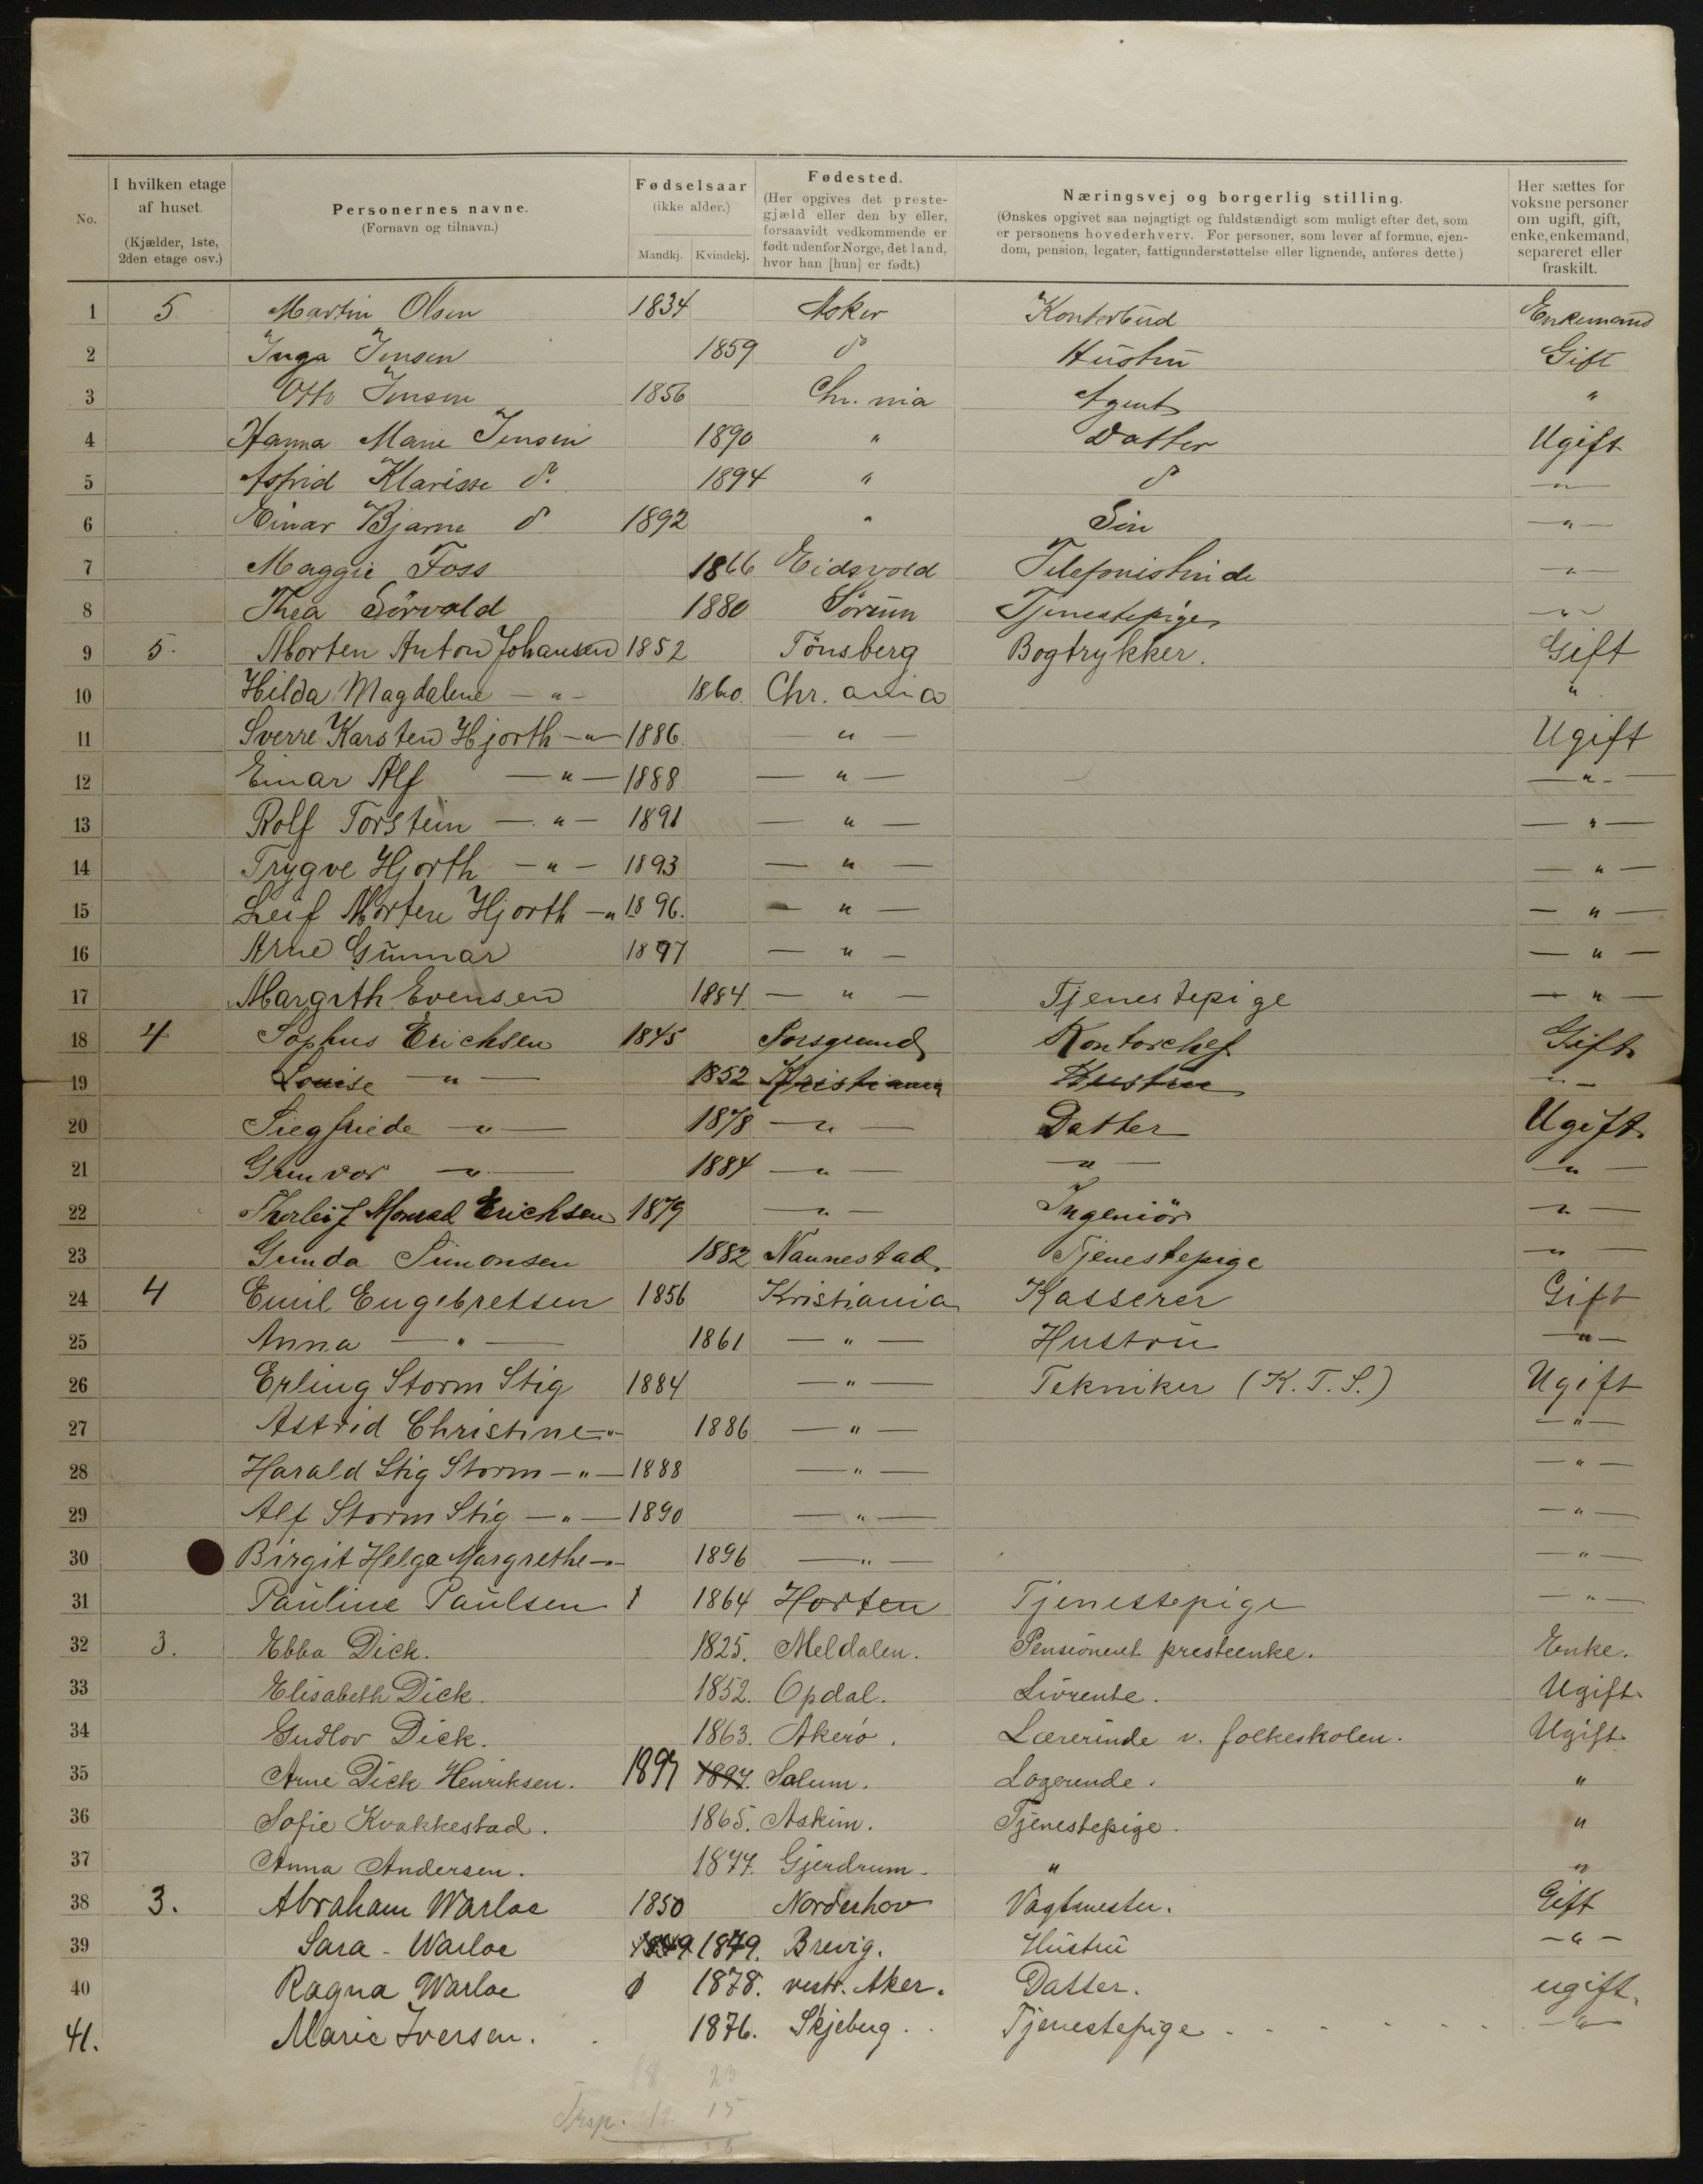 No. I hvilken etage af huset. (Kjælder, 1ste, 2den etage osv.) Personernes navne. (Fornavn og tilnavn.) Fødselsaar (ikke alder.) Mandkj. Kvindekj. Fødested. (Her opgives det prestegjæld eller den by eller, forsaavidt vedkommende er født udenfor Norge, det land, hvor han [hun] er født.) Næringsvej og borgerlig stilling. (Ønskes opgivet saa nøjagtigt og fuldstændigt som muligt efter det, som er personens hovederhverv. For personer, som lever af formue, ejendom, pension, legater, fattigunderstøttelse eller lignende, anføres dette) Her sættes for voksne personer om ugift, gift, enke, enkemand, separeret eller fraskilt.
1 5 Martin Olsen 1834 Asker Kontorbud Enkemand
2 Inga Jensen 1859 do Hustru Gift
3 Otto Jensen 1856 Chr. nia Agent "
4 Hanna Marie Jensen 1890 " Datter Ugift
5 Astrid Klarisse do. 1894 " do — " —
6 Einar Bjarne do 1892 " Sön — " —
7 Maggie Foss 1866 Eidsvold Telefonistinde — " —
8 Thea Sörvald 1880 Sörum Tjenestepige — " —
9 5. Morten Anton Johansen 1852 Tönsberg Bogtrykker. Gift
10 Hilda Magdalene — " — 1860. Chr. ania "
11 Sverre Karsten Hjorth — " — 1886. — " — Ugift
12 Einar Alf — " — 1888 — " — — " —
13 Rolf Torstein — " — 1891 — " — — " —
14 Trygve Hjorth — " — 1893 — " — — " —
15 Leif Morten Hjorth — " 1896. — " — — " —
16 Arne Gunnar 1897 — " — — " —
17 Margith Evensen 1884 — " — Tjenestepige — " —
18 4 Sophus Erichsen 1845 Porsgrund Kontorchef Gift
19 Louise — " — 1852 Kristiania Hustru " —
20 Siegfriede — " — 1878 — " — Datter Ugift
21 Gunvor — " — 1884 — " — — " — — " —
22 Thorleif Monrad Erichsen 1879 — " — Ingeniör — " —
23 Gunda Simonsen 1882 Nannestad Tjenestepige — " —
24 4 Emil Engebretsen 1856 Kristiania Kasserer Gift
25 Anna — " — 1861 — " — Hustru — " —
26 Erling Storm Stig 1884 — " — Tekniker (K. T. S.) Ugift
27 Astrid Christine — " — 1886 — " — — " —
28 Harald Stig Storm — " — 1888 — " — — " —
29 Alf Storm Stig — " — 1890 — " — — " —
30 Birgit Helga Margrethe — " — 1896 — " — — " —
31 Pauline Paulsen 1 1864 Horten Tjenestepige — " —
32 3. Ebba Dick. 1825. Meldalen. Pensioneret presteenke. Enke.
33 Elisabeth Dick. 1852. Opdal. Livrente. Ugift.
34 Gudlov Dick. 1863. Akerö. Lærerinde v. folkeskolen. Ugift
35 Arne Dick Henriksen. 1897 1897. Solum. Logerende. "
36 Sofie Kvakkestad. 1865. Askim. Tjenestepige. "
37 Anna Andersen. 1877. Gjerdrum. " "
38 3. Abraham Warloe 1850 Norderhov Vagtmester. Gift
39 Sara - Warloe 1849 1849. Brevig. Hustru — " —
40 Ragna Warloe 1878. vestr. Aker. Datter. ugift.
41. Marie Iversen. 1876. Skjeberg. Tjenestepige — " —
18 23
Trsp. 12 15